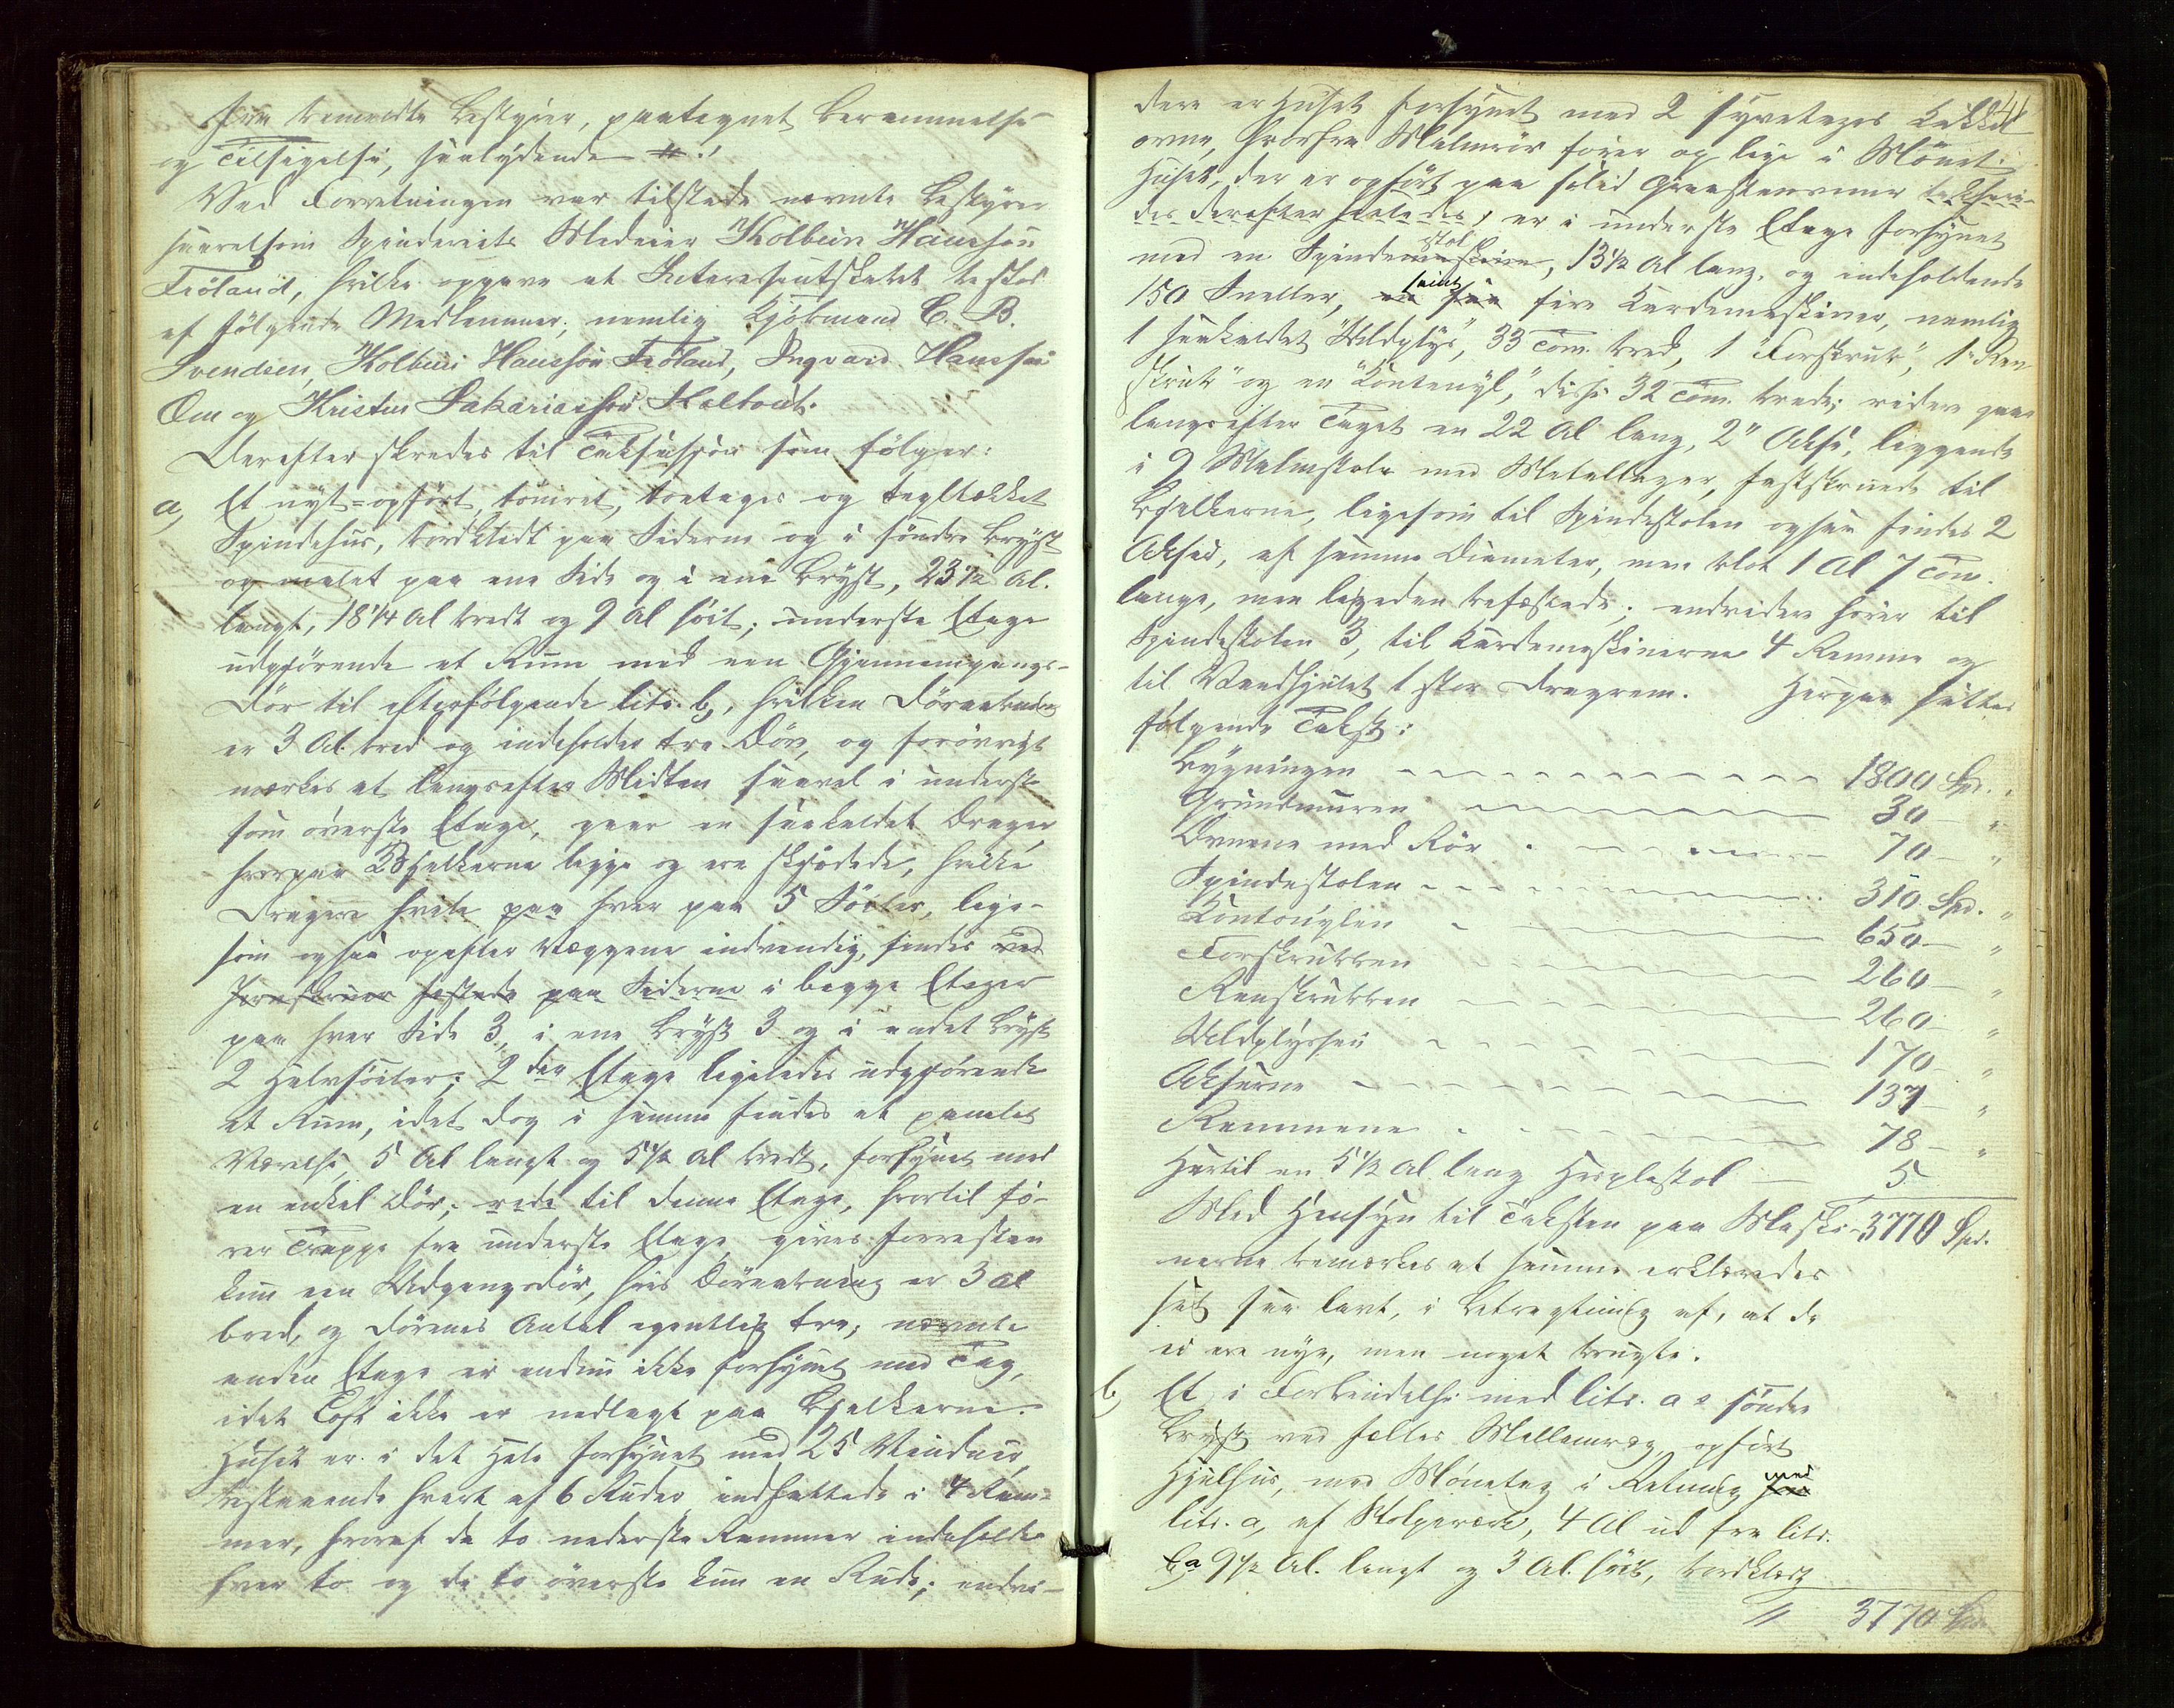 fra bemeldte Bestyrer, paategnet Berammelse
og Tilsigelse, saalydende #:!
Ved Forretningen var tilstede nævnte Bestyrer
saavelsom Spinderiets Medeier Kolbein Hansson
Fröland, hvilke opgave at Interessentskabet bestod
af fölgende Medlemmer, nemlig Kjöbmand C. B.
Svendsen, Kolbein Hansson Fröland, Ingvard Hansson
Oen og Kristen Sakariasson Holbout.
Derefter skredes til Taksasjon som fölger:
a, Et nyt-opfört, tömret, toetages og tegltækket
Spindehus, bordklædt paa Siderne og i söndre Bryst
og malet paa ene Side og i ene Bryst, 23 1/2 Al.
langt, 18 1/4 Al bredt og 9 Al höit; underste Etage
udgjörende et Rum med een Gjennemgangs-
dör til efterfölgende litr. b, hvilken Döraabning
er 3 Al. bred og indeholder tre Döre, og forövrigt
mærkes at langsefter Midten saavel i underste
som överste Etage, gaar en saakaldet Drager
hvorpaa Bjelkerne ligge og ere skjödede, hvilke
Dragere hvile paa hver paa 5 Söiler, lige-
som ogsaa opefter Væggene indvendig findes ved
Jernskruer fæstede paa Siderne i begge Etager
paa hver Side 3, i ene Bryst 3 og i andet Bryst
2 Halvsöiler; 2den Etage ligeledes udgjörende
et Rum, idet dog i samme findes et panelet
Værelse, 5 Al langt og 5 1/2 Al bredt, forsynet med
en enkel Dör; inde til denne Etage, hvortil fö-
rer Trappe fra underste Etage, gives forresten
kun een Udgangsdör, hvis Döraabning er 3 Al
bred, og Dörenes Antal egentlig tre; nævnte
anden Etage er endnu ikke forsynet med Tag,
idet Loft ikke er nedlagt paa Bjelkerne.
Huset er i det Hele forsynet med 25 Vinduer,
bestaaende hvert af 6 Ruder indfattede i 4 Ram-
mer, hvoraf de to nederste Rammer indeholde
hver to og de to överste kun en Rude; endvi-
41
dere er Huset forsynet med 2 tyvetages Kakkel
ovne, hvorfra Malmrör förer og lige i Mönet.
Huset, der er opfört paa solid Graastensmur beskri-
des derefter saaledes, er i underste Etage forsynet
med en Spindemaskine stol, 13 1/2 Al lang, og indeholdende
150 Sneller, fire Kardemaskiner, nemlig
1 saakaldet "Uldplys", 33 Tom. bred, 1 "Forskrub", 1 "Ren
skrub" og en "Kontinyl", disse 32 Tom. brede; videre gaar
langsefter Taget en 22 Al lang, 2" Akse, liggende
i 9 Malmstole med Metallager, fastskruede til
Bjelkerne, ligesom til Spindestolen ogsaa findes 2
Akser, af samme Diameter, men blot 1 Al 7 Tom.
lange, men ligeden befæstede; endvidere hörer til
Spindestolen 3, til Kardemaskinerne 4 Remme og
til Vandhjulet 1 stor Dragrem. Herpaa sattes
fölgende Takst:
Bygningen 1800 Spd. "
Grundmuren 30 — "
Ovnene med Rör 70 — "
Spindestolen 310 Spd. "
Kontinylen 650 — "
Forskrubben 260 — "
Renskrubben 260 — "
Uldplyssen 170 — "
Akserne 137 — "
Remmene 78 — "
Hertil en 5 1/2 Al lang Hesplestol 5
3770 Spd.
Med Hensyn til Taksten paa Maski-
nerne bemærkes at samme erklæredes
sat saa lavt, i Betragtning af, at de
ei ere nye, men noget brugte.
b, Et i Forbindelse med litr. a's söndre
Bryst ved fælles Mellemvæg, opfört
Hjulhus, med Mönetag i Retning med
litr. a, af Stolpeværk, 4 Al ud fra litr.
a 9 1/2 Al. langt og 3 Al. höit, bordklædt
// 3770 Spd.